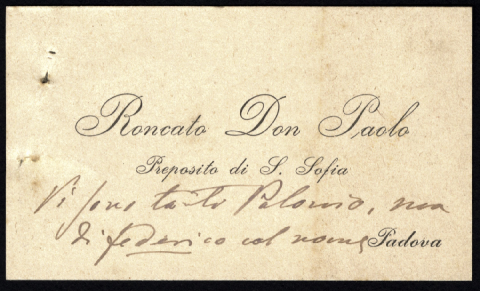 Roncato Don Paolo
Preposito di S. Sofia
Vi sono tanti Palonio, ma
di federico col nome
Padova